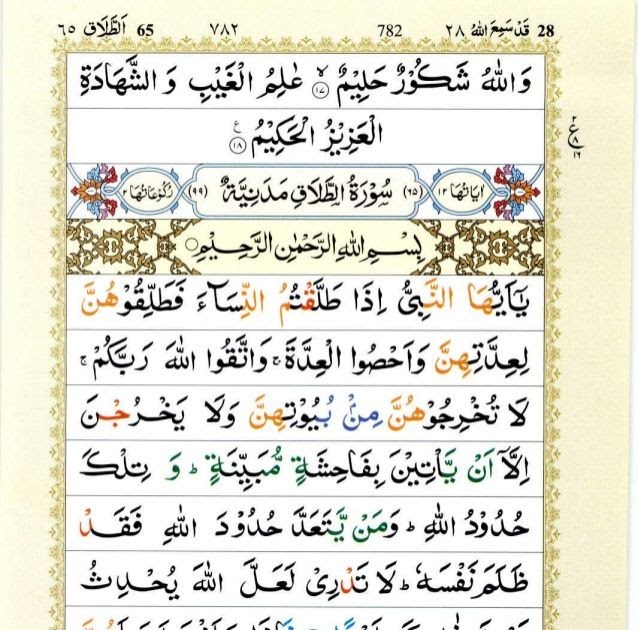 28 قَدْ سَمِعَ اللهُ ٢٨ 782 ٧٨٢ 65 اَلطَّلَاق ٦٥
وَاللّٰهُ شَكُوْرٌ حَلِيْمٌ ۙ﴿١٧﴾ عٰلِمُ الْغَيْبِ وَ الشَّهَادَةِ
الْعَزِيْزُ الْحَكِيْمُ ﴿١٨﴾ ع
٢ ع ٨ ١٦
اٰيَاتُهَا ١٢ (٦٥) سُوْرَةُ الطَّلَاقِ مَدَنِيَّةٌ (٩٩) رُكُوْعَاتُهَا ٢
بِسْمِ اللهِ الرَّحْمٰنِ الرَّحِيْمِ
يٰۤاَيُّهَا النَّبِىُّ اِذَا طَلَّقْتُمُ النِّسَآءَ فَطَلِّقُوْهُنَّ
لِعِدَّتِهِنَّ وَاَحْصُوا الْعِدَّةَ ۚ وَاتَّقُوا اللّٰهَ رَبَّكُمْ ۚ
لَا تُخْرِجُوْهُنَّ مِنْۢ بُيُوْتِهِنَّ وَلَا يَخْرُجْنَ
اِلَّاۤ اَنْ يَّاْتِيْنَ بِفَاحِشَةٍ مُّبَيِّنَةٍ ؕ وَ تِلْكَ
حُدُوْدُ اللّٰهِ ؕ وَمَنْ يَّتَعَدَّ حُدُوْدَ اللّٰهِ فَقَدْ
ظَلَمَ نَفْسَهٗ ؕ لَا تَدْرِىْ لَعَلَّ اللّٰهَ يُحْدِثُ